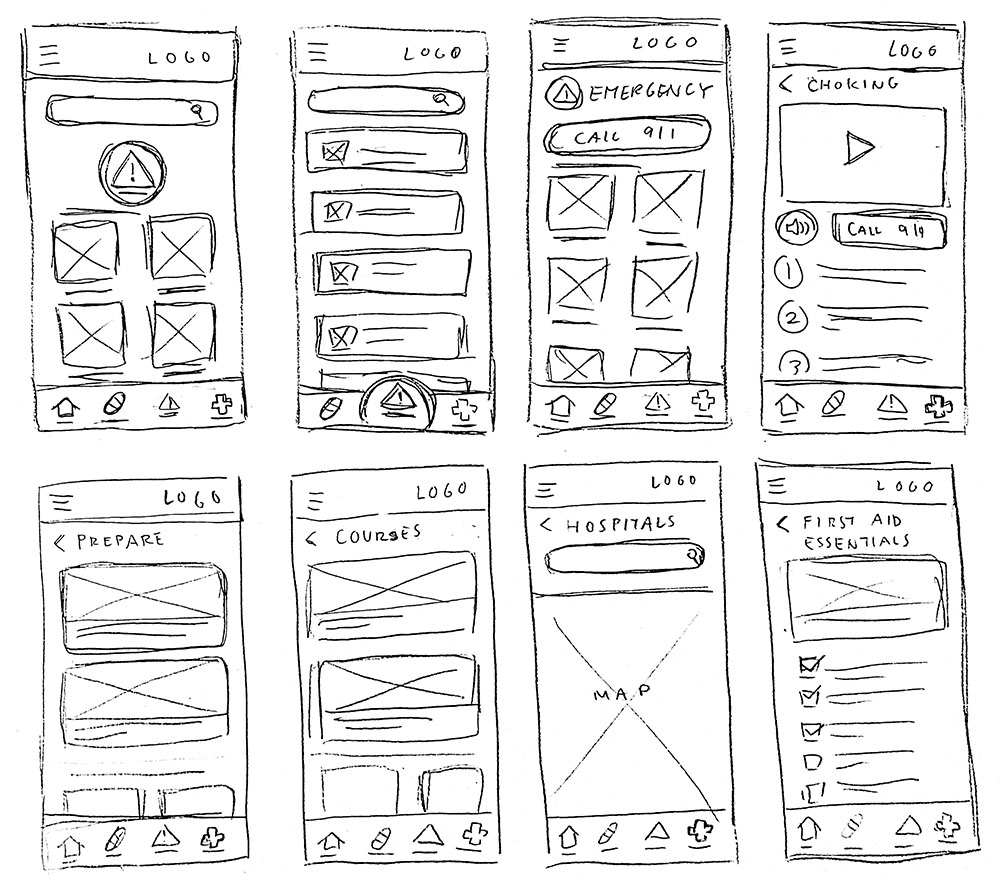 LOGO
LOGO
LOGO
EMERGENCY
CALL 911
LOGO
< CHOKING
CALL 911
1
2
3
LOGO
< PREPARE
LOGO
< COURSES
LOGO
< HOSPITALS
MAP
LOGO
< FIRST AID
ESSENTIALS